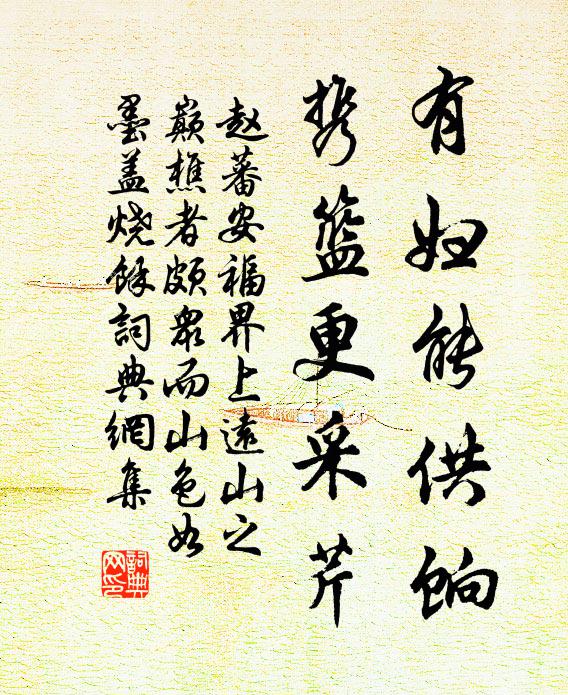 有妇能供饷
携篮更采芹
赵蕃安福界上远山之
巅樵者颇众而山色如
墨盖烧馀词典网集
词典
网印